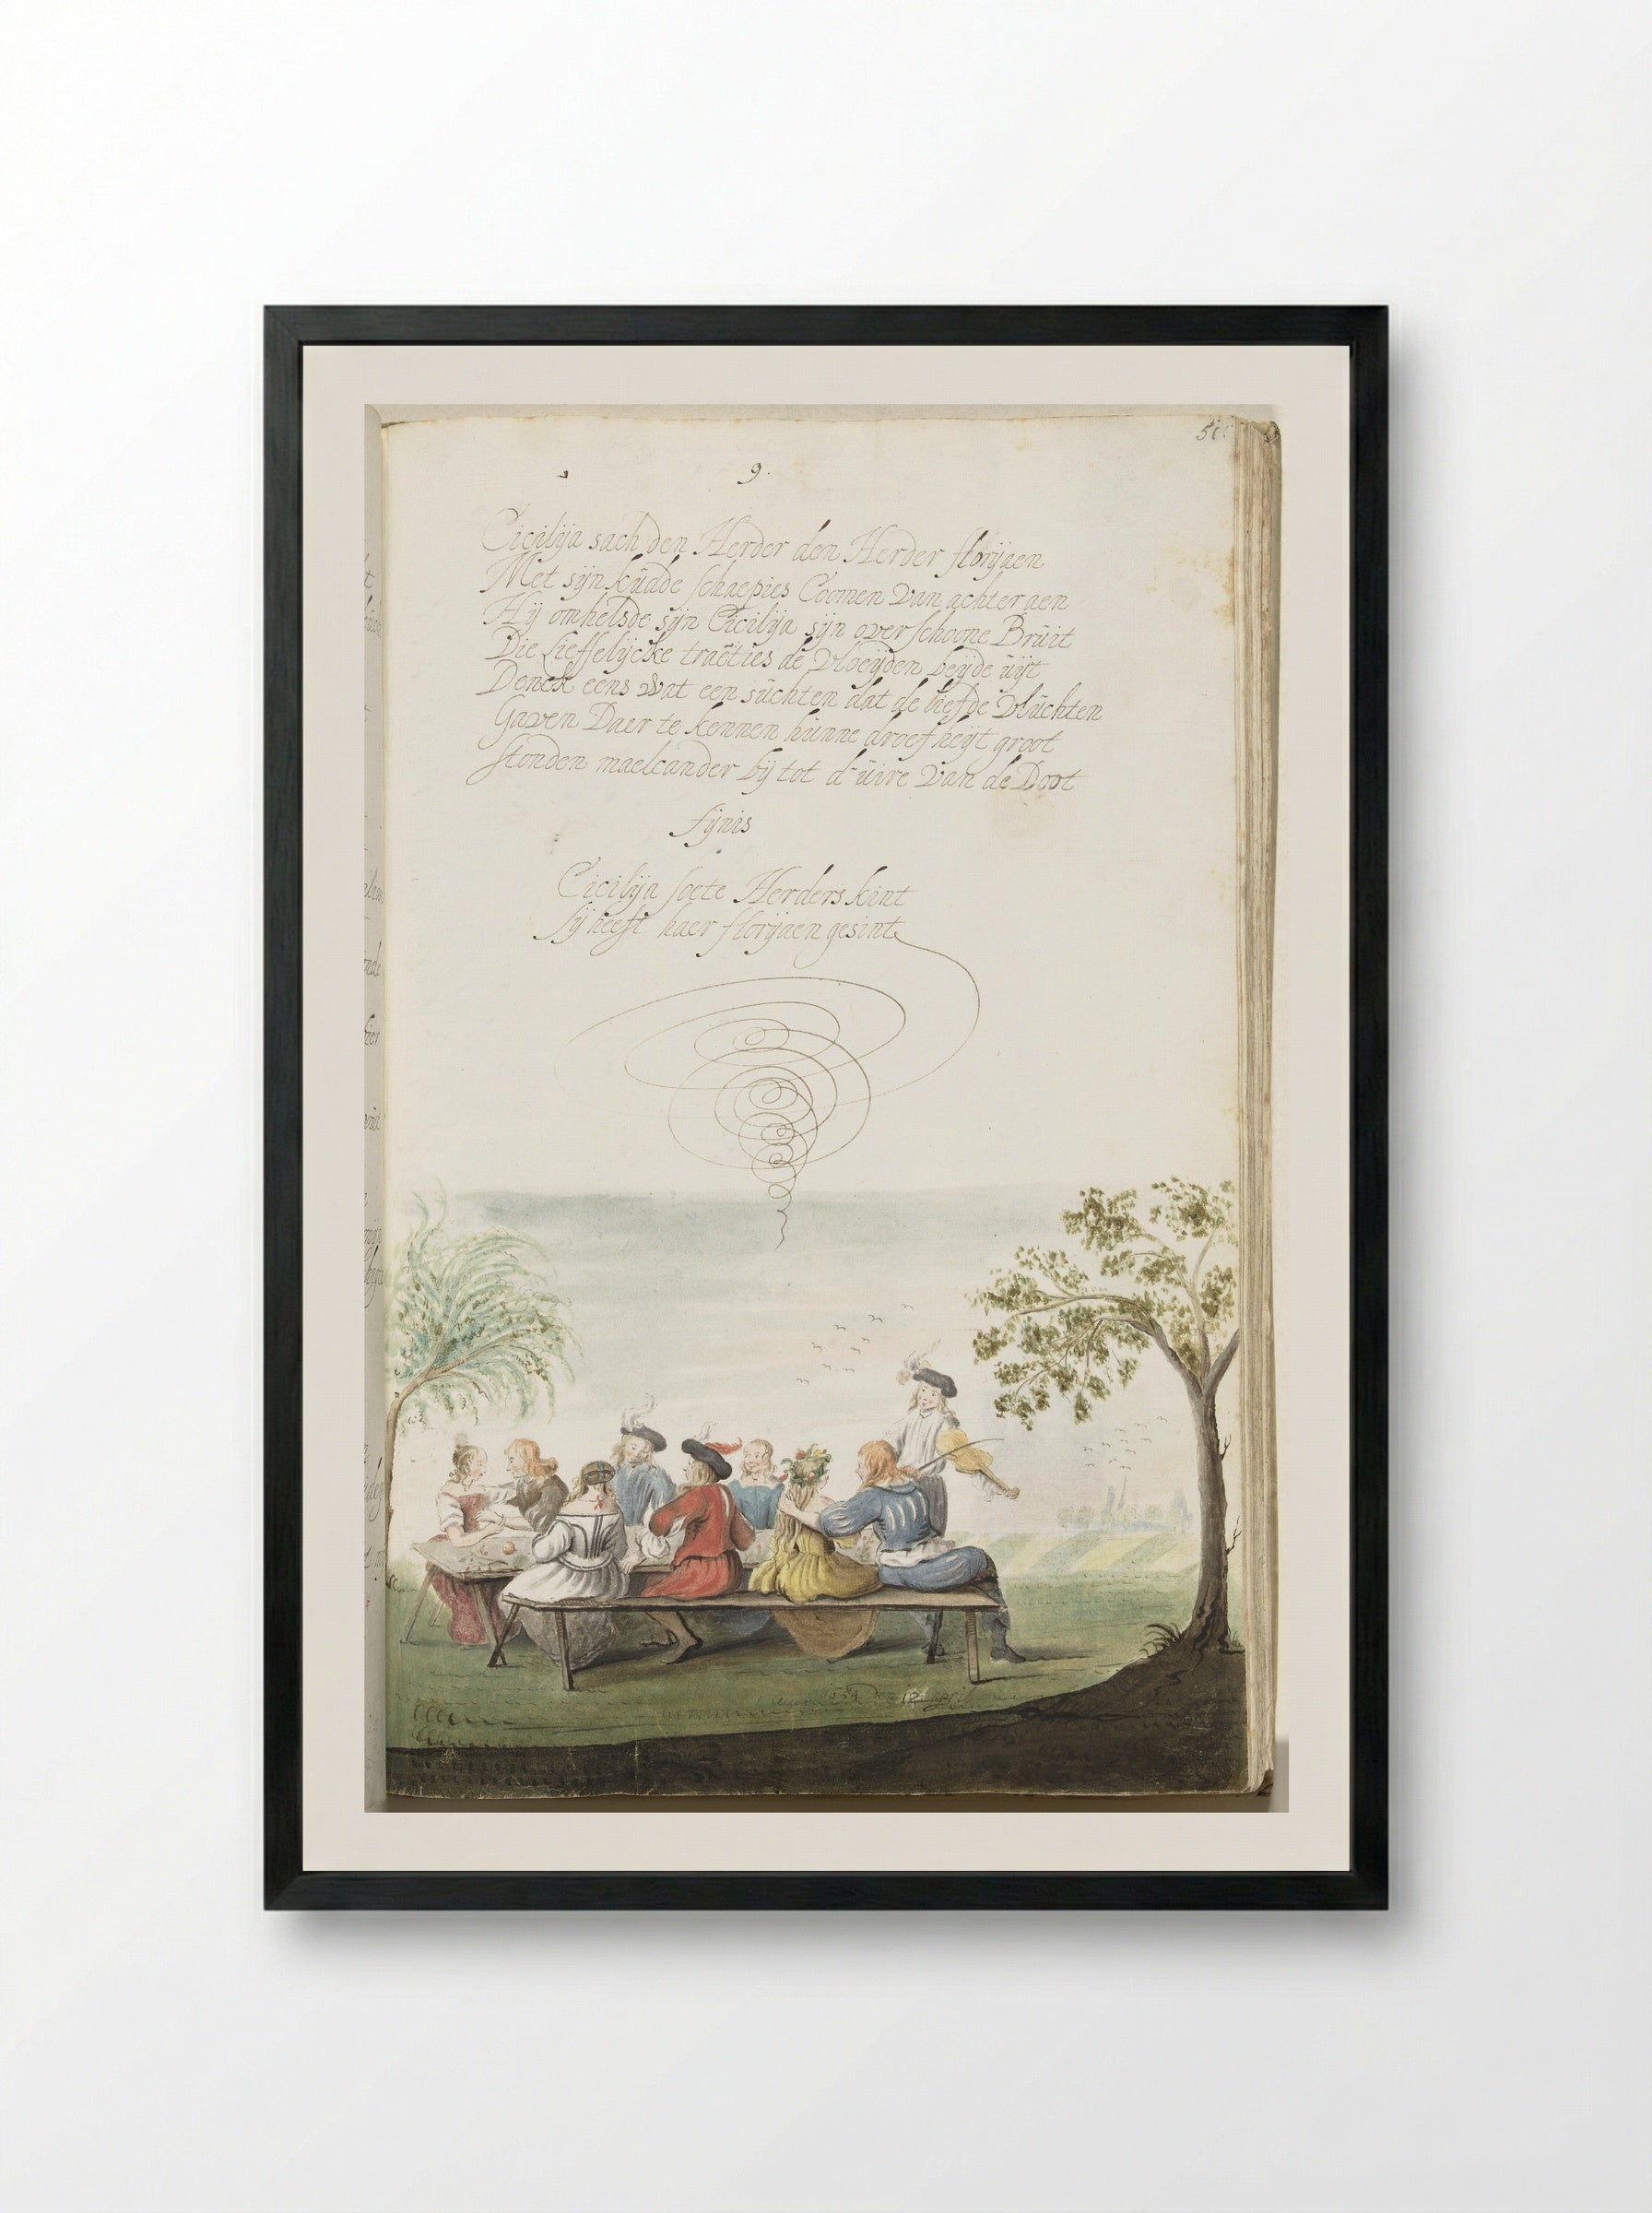 9.
Cicilija sach den Herder den Herder florijaen
Met sijn kudde schaepies Coomen Van achter aen
Hij omhelsde sijn Cicilija sijn over schoone Bruit
Die Lieffelijcke tracties de Vloeijden beijde uijt
Denck eens wat een suchten dat de liefde Vluchten
Gaven Daer te kennen hunne droef heijt groot
stonden maelcander bij tot d'uire Van de Doot
fijnis
Cicilija soete Herders kint
sij heeft haer florijaen gesint
den 12 april